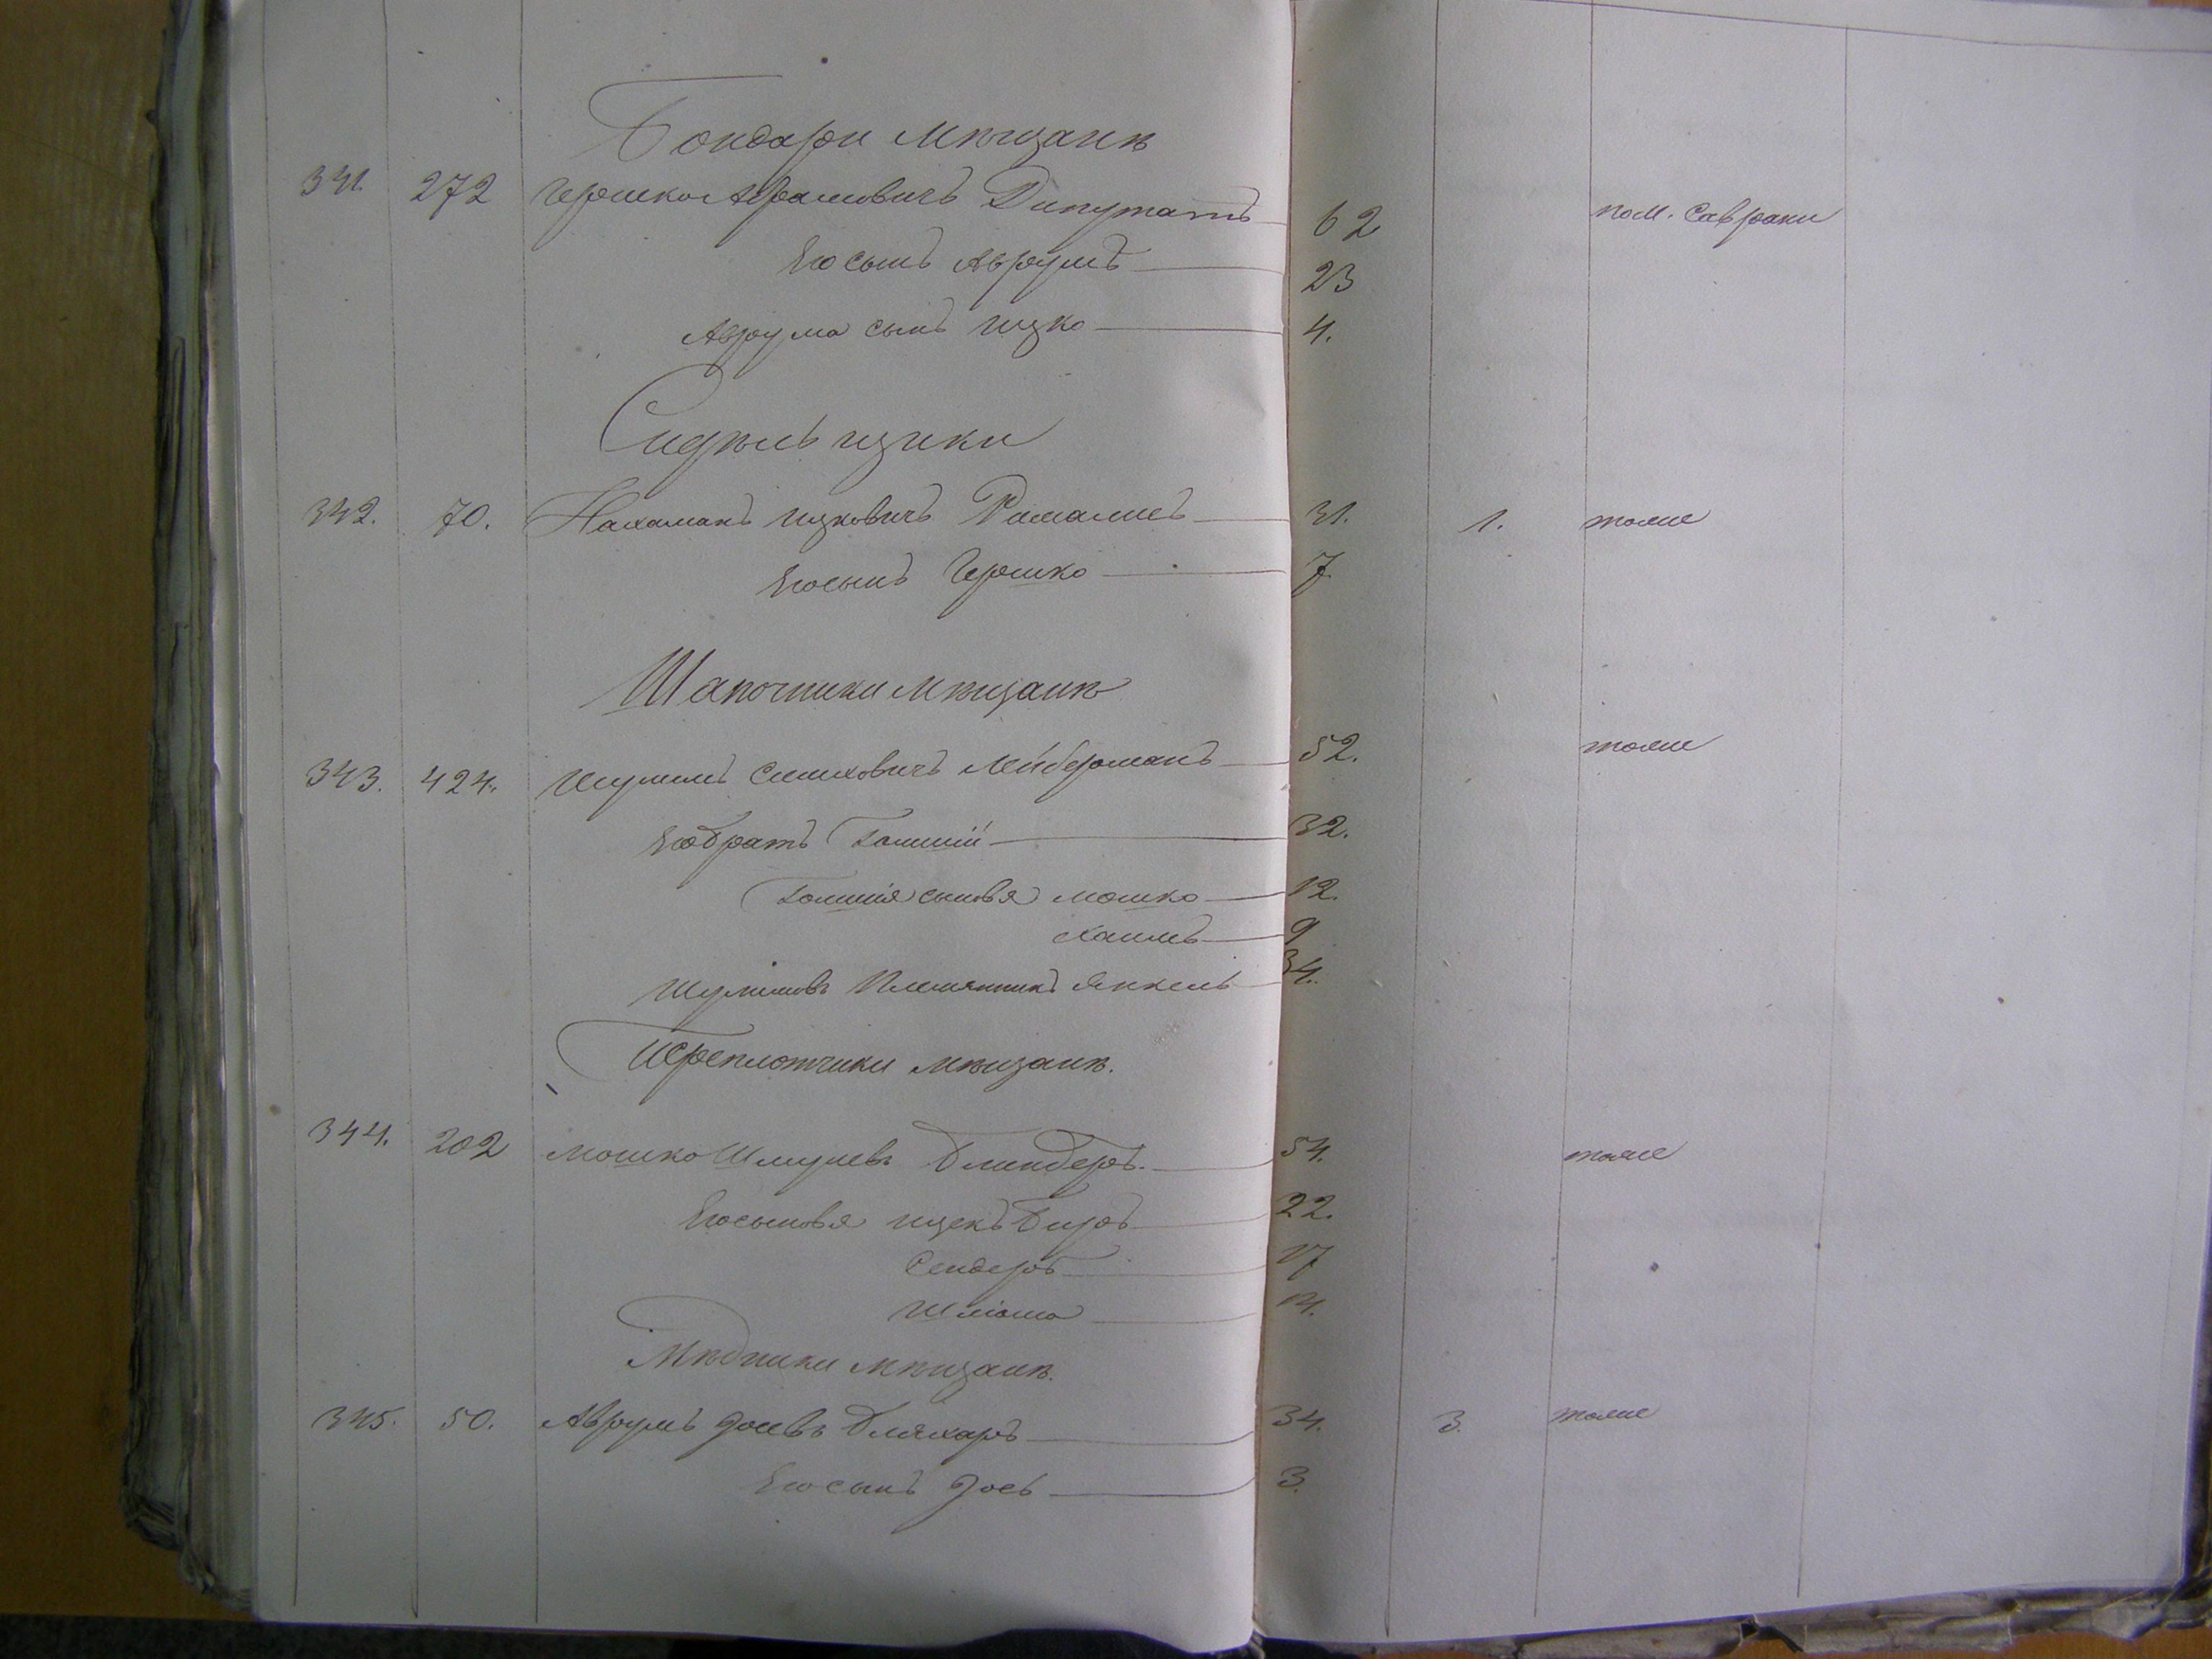 Бондари мѣщанѣ
341. 272 Гершко Абрамовичъ Дипутатъ 62 пом. Саврани
Его сынъ Аврумъ 23
Аврума сынъ Ицко 4.
Сидѣльщики
342. 70. Нахаманъ Ицковичъ 31. 1. тоже
Его сынъ Гершко 7
Шапочники мѣщанѣ
343. 424. Шулимъ Симховичъ Лейберманъ 52. тоже
Его братъ 32.
сыновя Мошко 12.
Хаимъ 9
Шулимовъ Племянникъ Янкель 34.
Переплотчики мѣщанѣ.
344. 202 Мошко Шмулевъ Блиндеръ. 54. тоже
Его сыновя Ицекъ Биръ 22.
Сендеръ 17
Шліома
Мѣдники мѣщанѣ.
345. 50. Аврумъ Іосевъ Бляхаръ 34. 3. тоже
Его сынъ Іось 3.